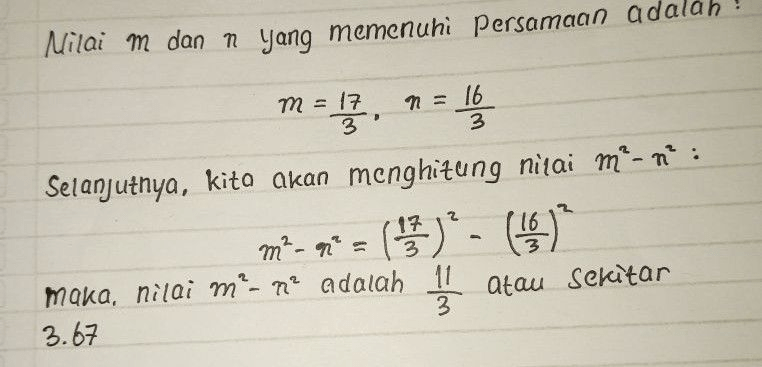 Nilai m dan n yang memenuhi persamaan adalah :
m = 17/3, n = 16/3
Selanjutnya, kita akan menghitung nilai m² - n² :
m² - n² = (17/3)² - (16/3)²
maka, nilai m² - n² adalah 11/3 atau sekitar
3.67